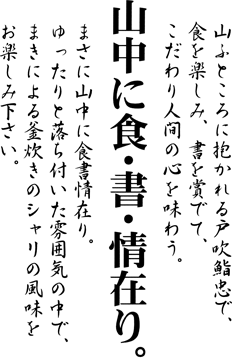 山ふところに抱かれる戸吹鮨忠で、
食を楽しみ、書を賞でて、
こだわり人間の心を味わう。
山中に食・書・情在り。
まさに山中に食書情在り。
ゆったりと落ち付いた雰囲気の中で、
まきによる釜炊きのシャリの風味を
お楽しみ下さい。